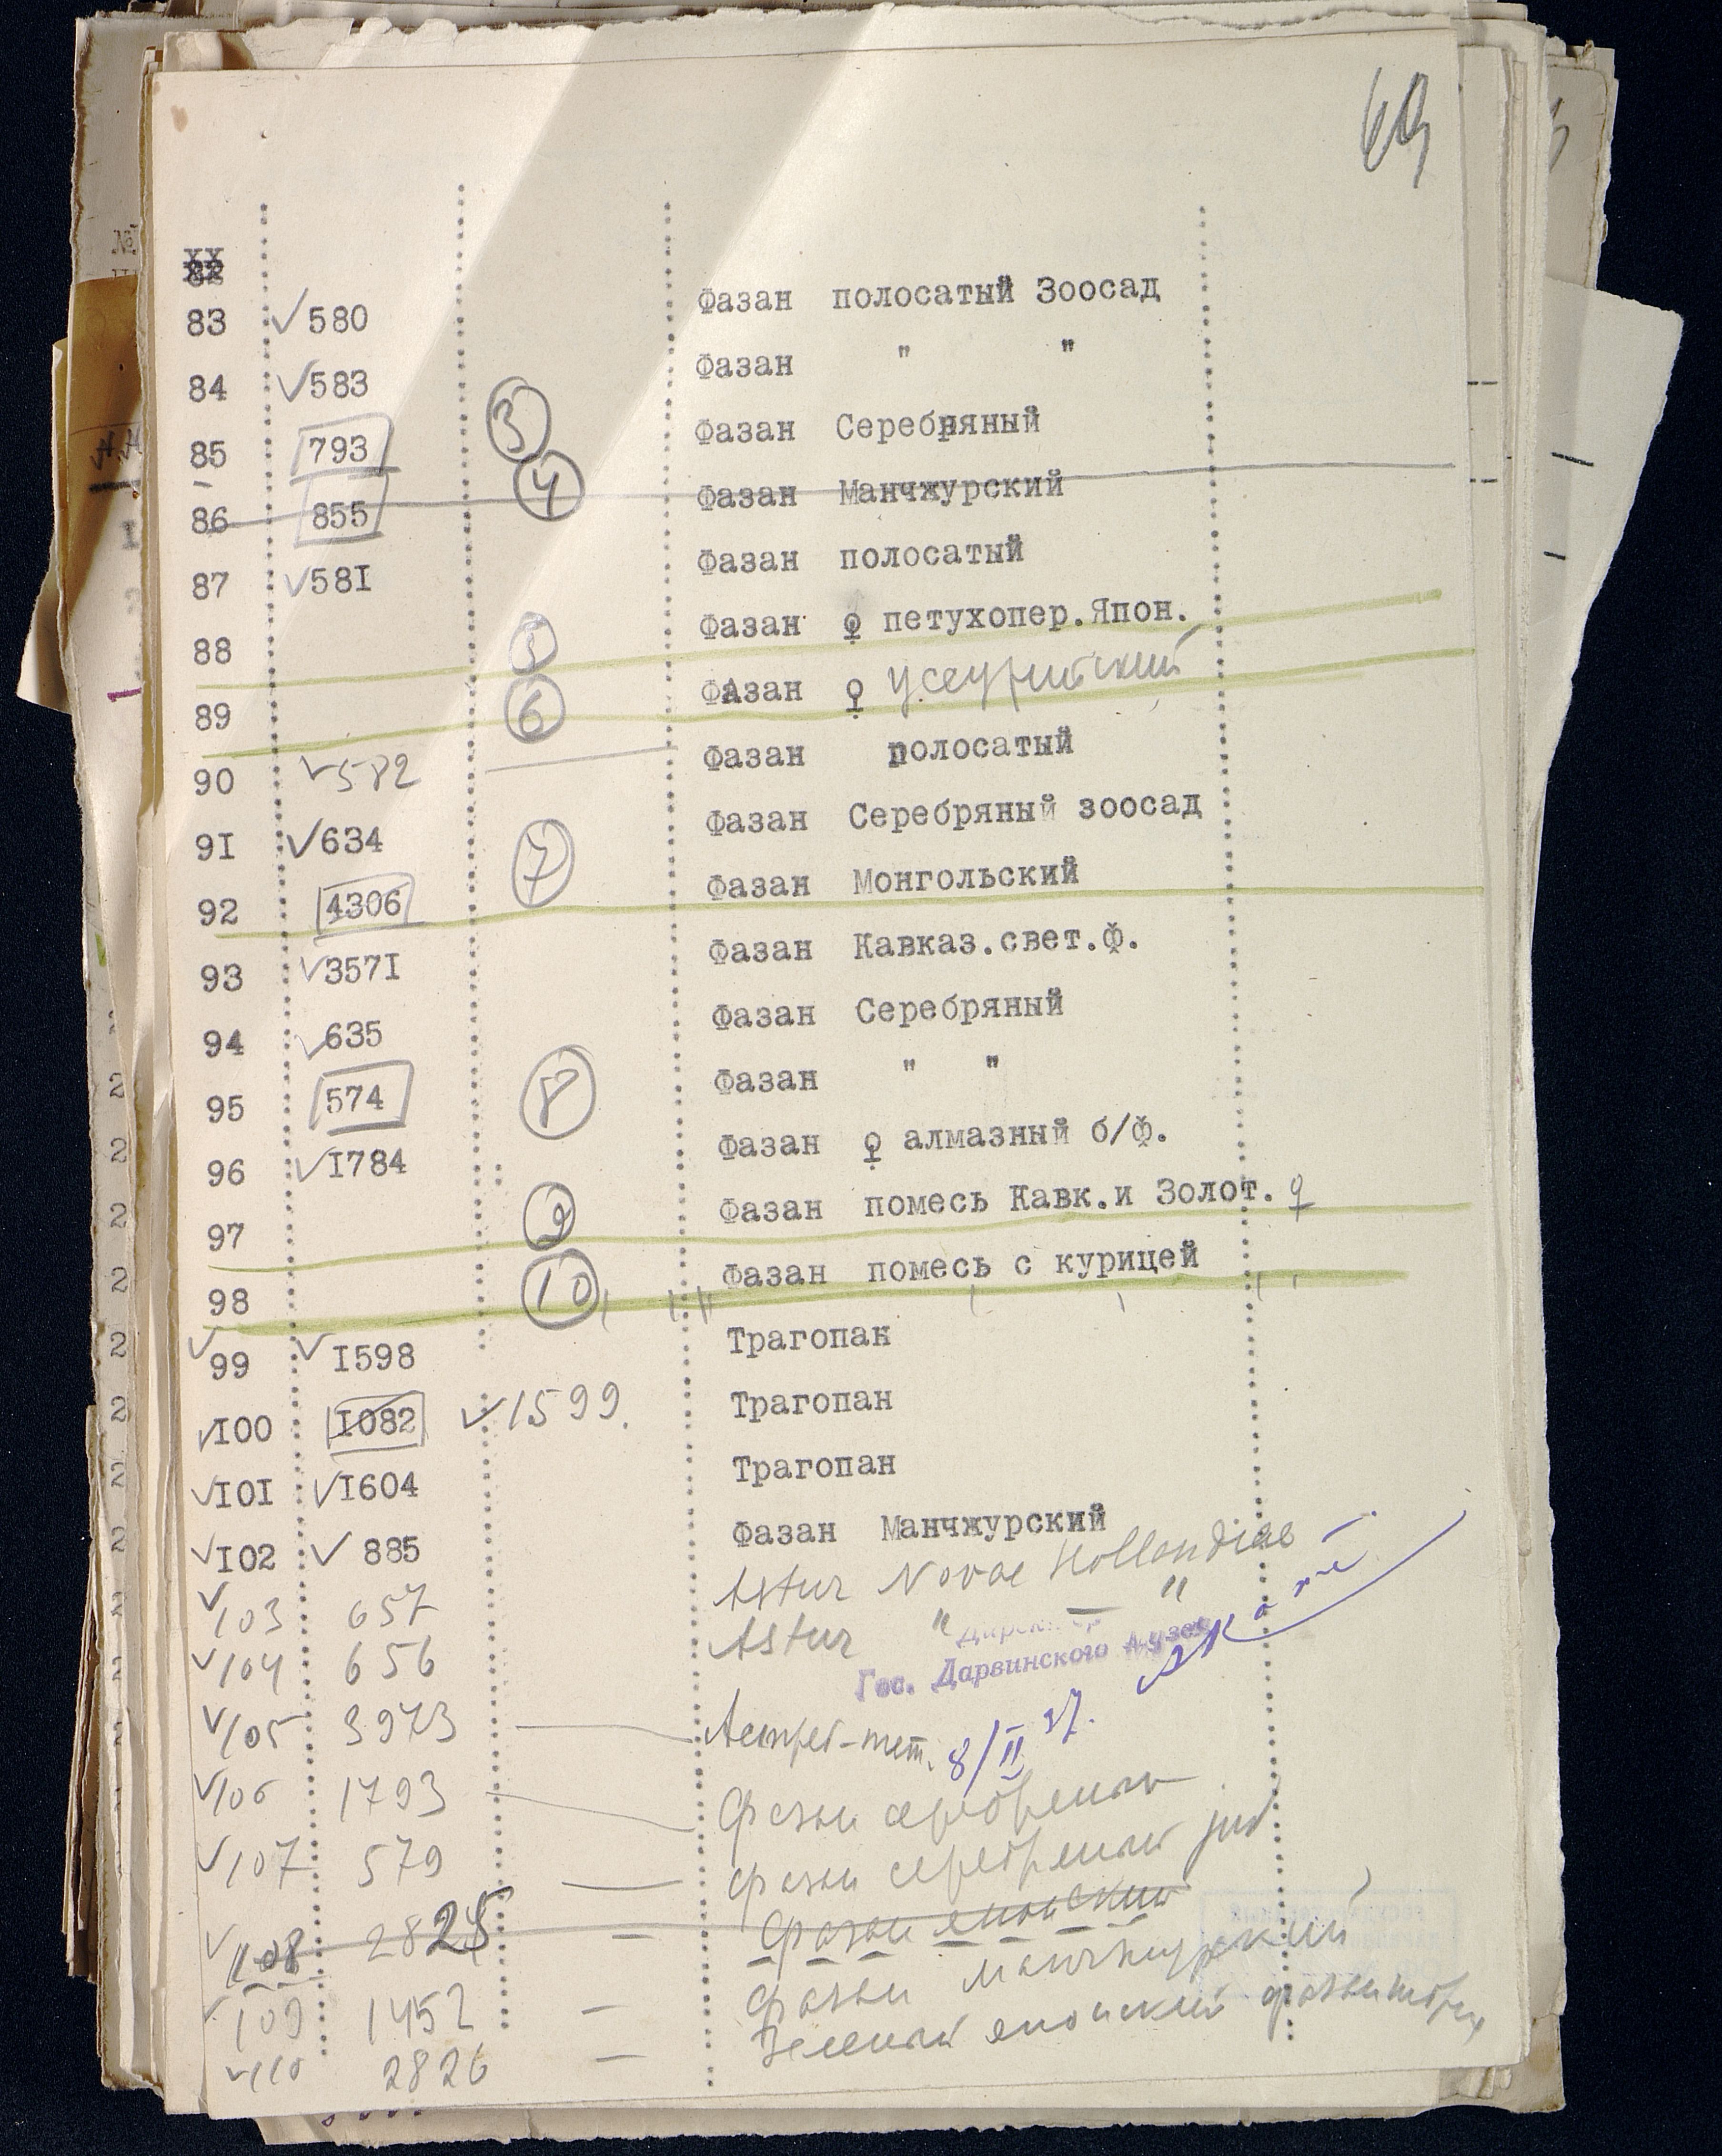 69
83 ✓580 Фазан полосатый Зоосад
84 ✓583 Фазан " "
85 793 3 Фазан Серебряный
86 855 4 Фазан Манчжурский
87 ✓581 Фазан полосатый
88 5 Фазан ♀ петухопер.Япон.
89 6 Фазан ♀ Уссурийский
90 ✓582 Фазан полосатый
91 ✓634 Фазан Серебряный зоосад
92 4306 7 Фазан Монгольский
93 ✓3571 Фазан Кавказ.свет.ф.
94 ✓635 Фазан Серебряный
95 574 8 Фазан " "
96 ✓1784 Фазан ♀ алмазный б/ф.
97 9 Фазан помесь Кавк.и Золот. ♀
98 10 Фазан помесь с курицей
✓99 ✓1598 Трагопан
✓100 1082 ✓1599. Трагопан
✓101 ✓1604 Трагопан
✓102 ✓885 Фазан Манчжурский
✓103 657 Astur Novae Hollandiae
✓104 656 Astur " "
Директор
Гос. Дарвинского Музея
✓105 3973 — тет.
8/II 37.
✓106 1793 — Фазан серебряный
✓107 579 — Фазан серебряный juv
✓108 2825 — Фазан японский
✓109 1452 — Фазан манчжурский
✓110 2826 — Зеленый японский фазан